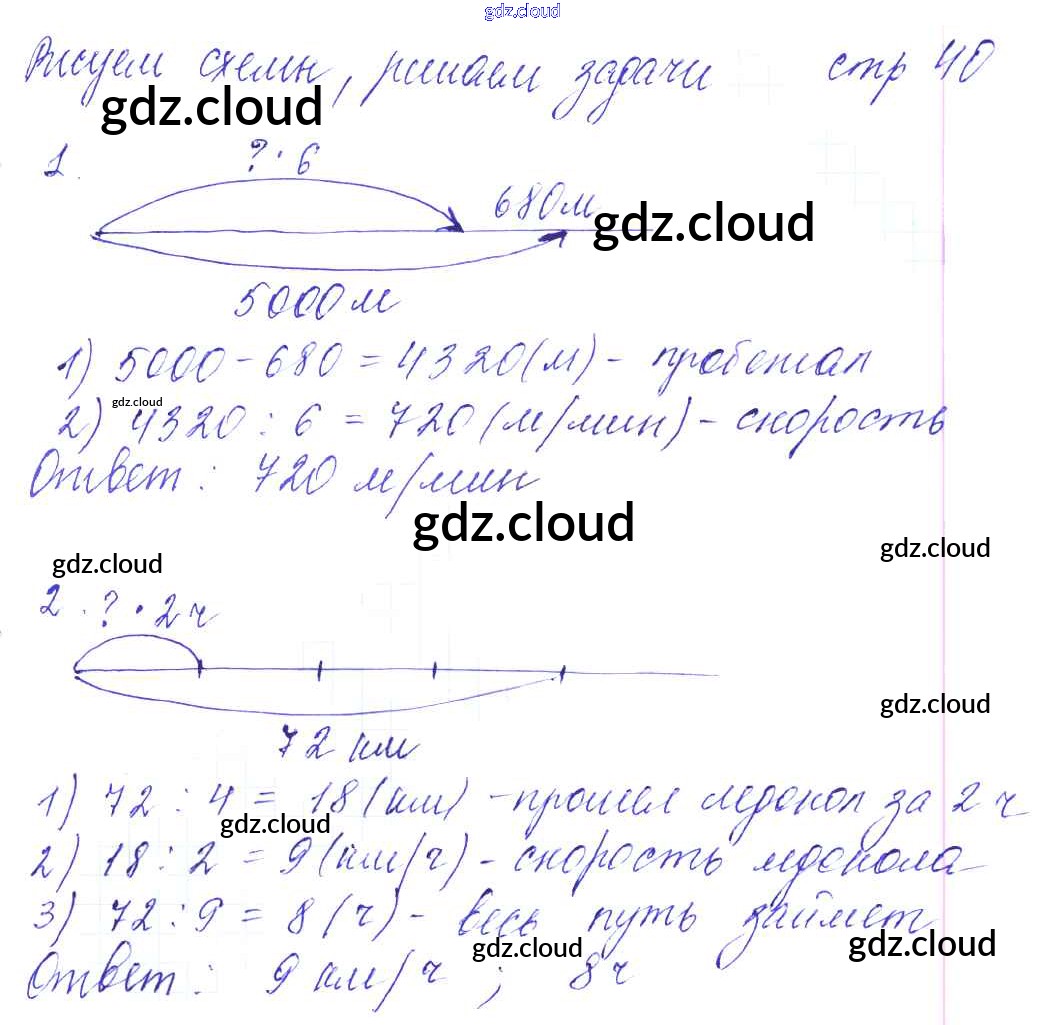 gdz.cloud
Рисуем схемы, решаем задачи стр 40
gdz.cloud
1. ? · 6
680м
gdz.cloud
5000м
1) 5000 - 680 = 4320(м) - пробежал
gdz.cloud
2) 4320 : 6 = 720(м/мин) - скорость
Ответ: 720 м/мин
gdz.cloud
gdz.cloud
gdz.cloud
2. ? · 2ч
gdz.cloud
72 км
1) 72 : 4 = 18(км) - прошел ледокол за 2 ч
gdz.cloud
2) 18 : 2 = 9(км/ч) - скорость ледокола
3) 72 : 9 = 8(ч) - весь путь займет
gdz.cloud
gdz.cloud
Ответ: 9 км/ч ; 8ч